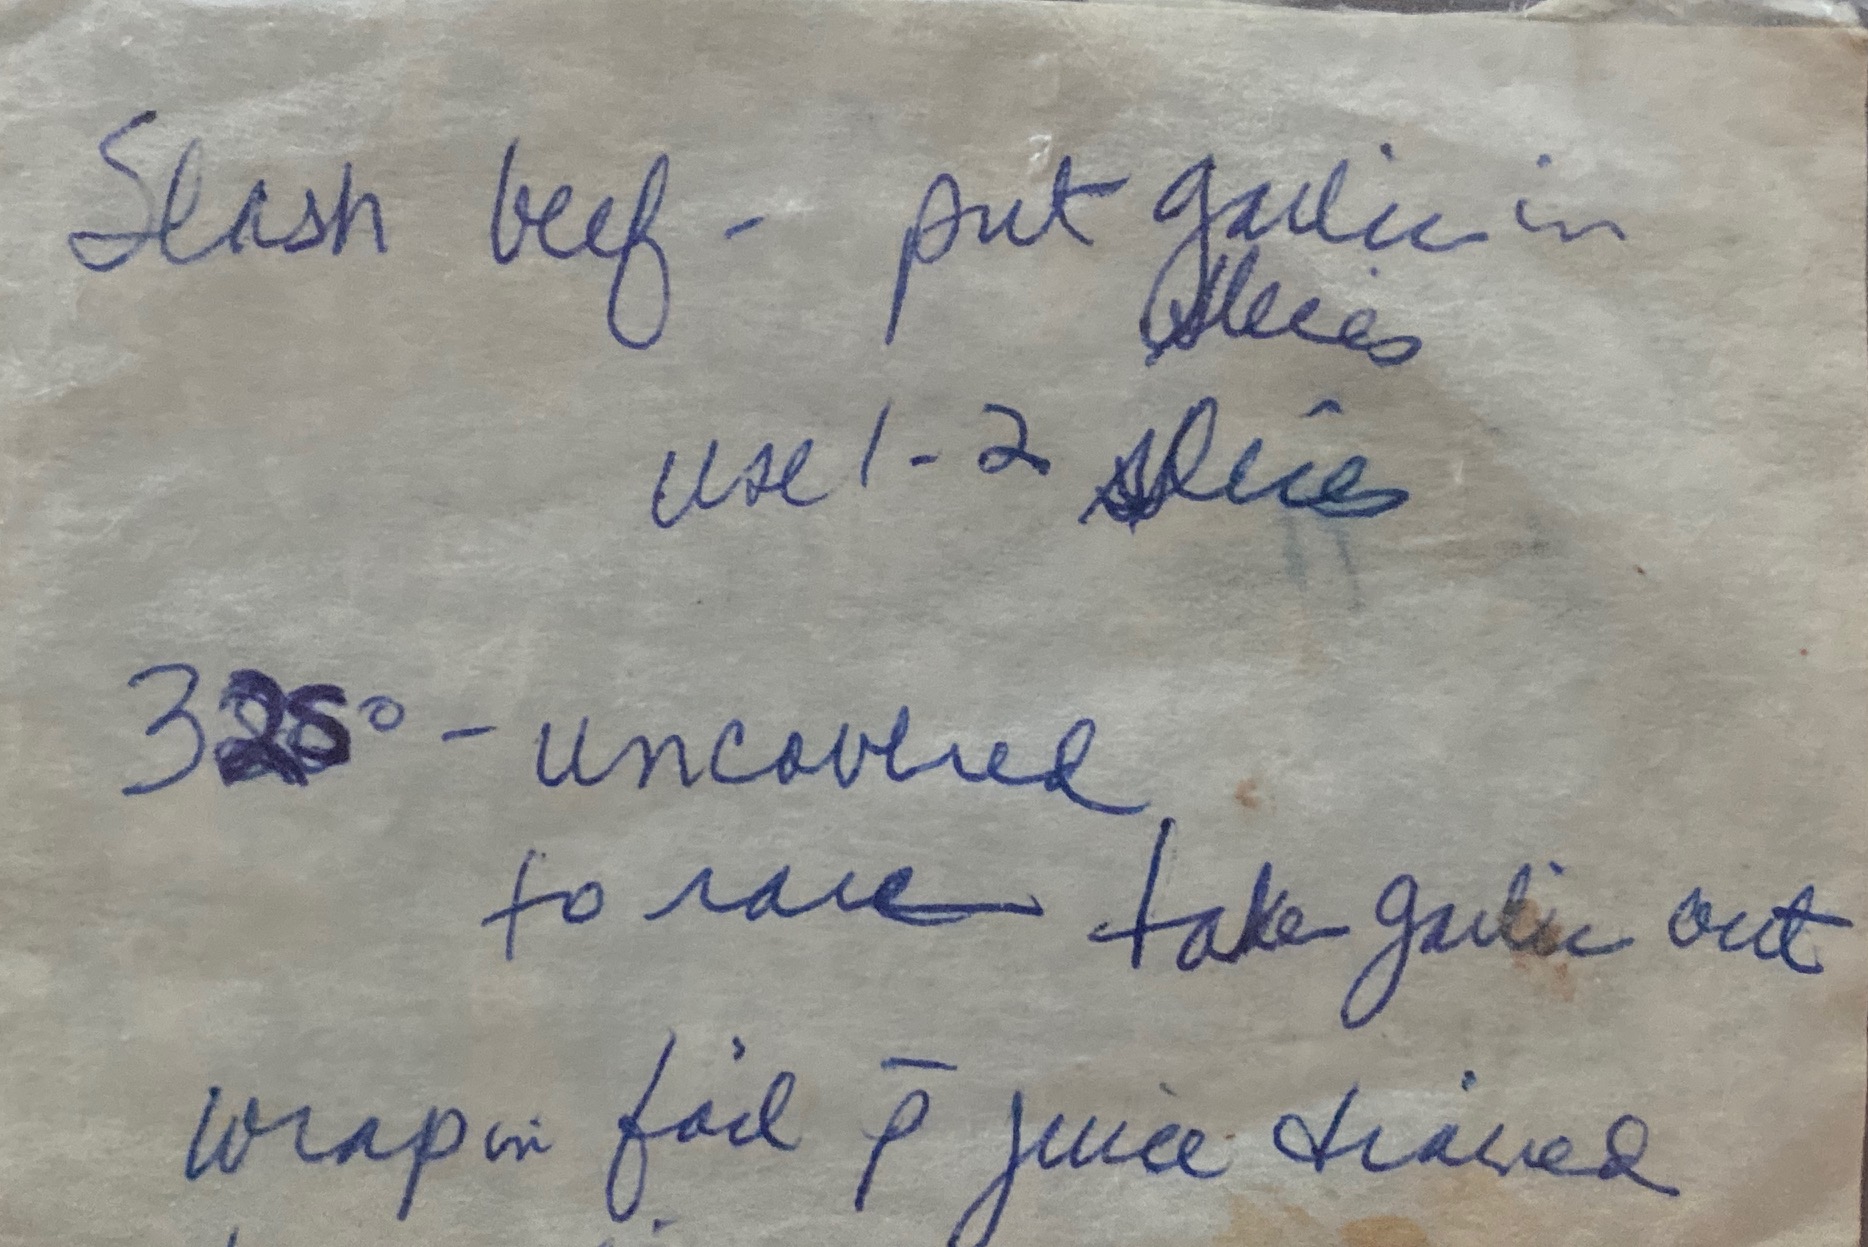 Slash beef - put garlic in
slices
use 1-2 slices
325° - uncovered
to rare take garlic out
wrap in foil p̄ juice drained